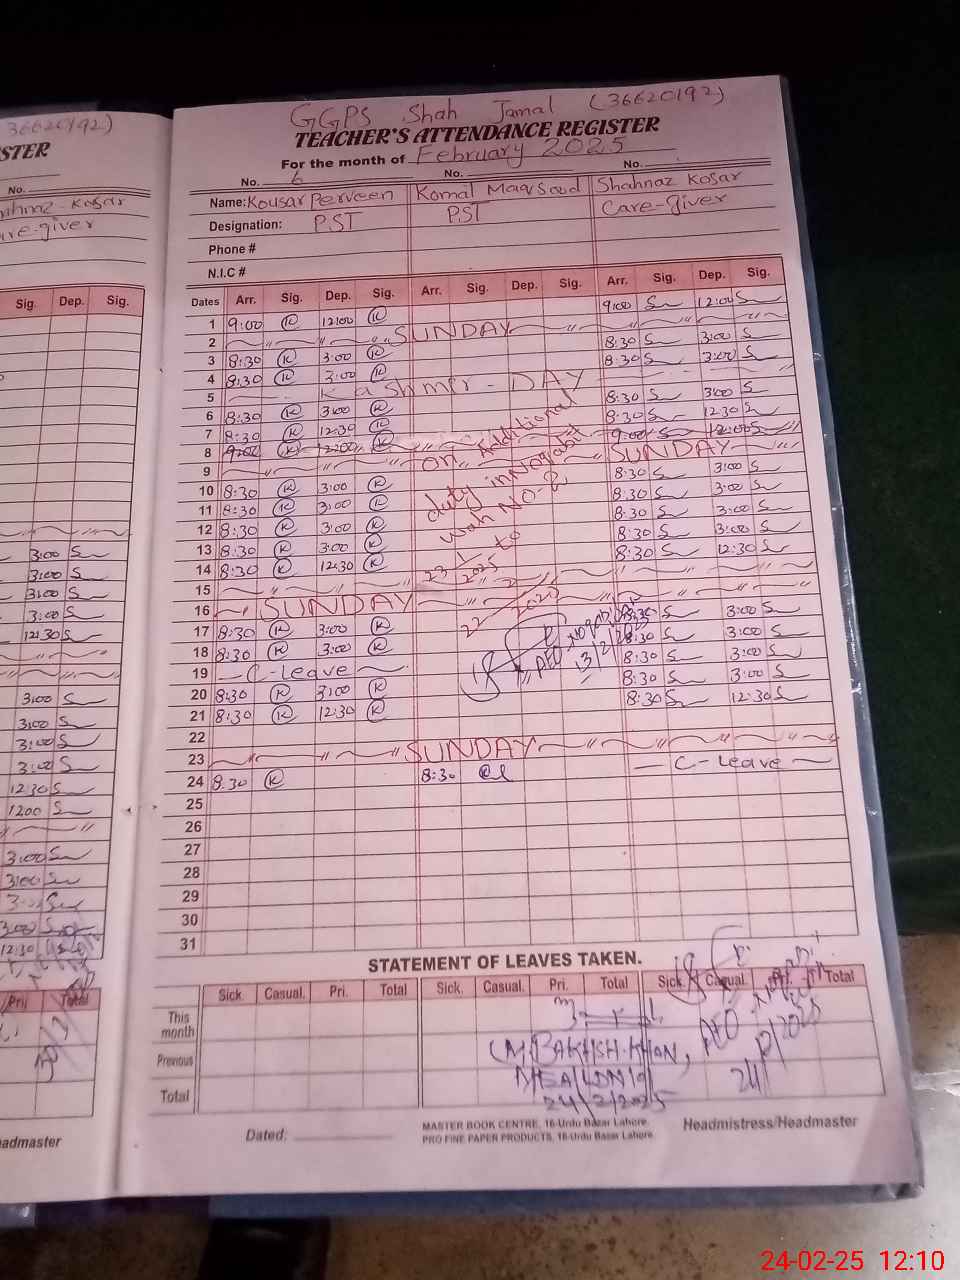 36620192)
STER
No.
Shahnaz-Kosar
Care-giver
Sig. Dep. Sig.
3:00 S
3:00 S
3:00 S
3:00 S
12:30 S
3:00 S
3:00 S
3:00 S
3:00 S
12:30 S
1200 S
3:00 S
3:00 S
3:00 S
3:00 S
12:30
Pri Total
eadmaster
GGPS Shah Jamal (36620192)
TEACHER'S ATTENDANCE REGISTER
For the month of February 2025
No. 6 No. No.
Name: Kousar Perveen Komal Maqsood Shahnaz Kosar
Designation: PST PST Care-giver
Phone #
N.I.C #
Dates Arr. Sig. Dep. Sig. Arr. Sig. Dep. Sig. Arr. Sig. Dep. Sig.
1 9:00 K 12:00 K 9:00 S 12:00 S
2 SUNDAY
3 8:30 K 3:00 K 8:30 S 3:00 S
4 8:30 K 3:00 K 8:30 S 3:00 S
5 Kashmir - DAY
6 8:30 K 3:00 K 8:30 S 3:00 S
7 8:30 K 12:30 K 8:30 S 12:30 S
8 9:00 K 12:00 K 9:00 S 12:00 S
9 SUNDAY
10 8:30 K 3:00 K 8:30 S 3:00 S
11 8:30 K 3:00 K 8:30 S 3:00 S
12 8:30 K 3:00 K 8:30 S 3:00 S
13 8:30 K 3:00 K 8:30 S 3:00 S
14 8:30 K 12:30 K 8:30 S 12:30 S
On Additional
duty in Nogabit
wah NO-2
23-1-2025 to
22-2-2025
15
16 SUNDAY
17 8:30 K 3:00 K 8:30 S 3:00 S
18 8:30 K 3:00 K 8:30 S 3:00 S
19 C-Leave 8:30 S 3:00 S
20 8:30 K 3:00 K 8:30 S 3:00 S
21 8:30 K 12:30 K 8:30 S 12:30 S
AEO
13/2/2025
22
23 SUNDAY
24 8:30 K 8:30 C-Leave
25
26
27
28
29
30
31
STATEMENT OF LEAVES TAKEN.
Sick. Casual. Pri. Total Sick. Casual. Pri. Total Sick. Casual. Pri. Total
This month
Previous
Total
(M. BAKHSH. KHAN,
24/2/2025
AEO
24/2/2025
Dated:
MASTER BOOK CENTRE, 16-Urdu Bazar Lahore.
PRO FINE PAPER PRODUCTS, 16-Urdu Bazar Lahore.
Headmistress/Headmaster
24-02-25 12:10